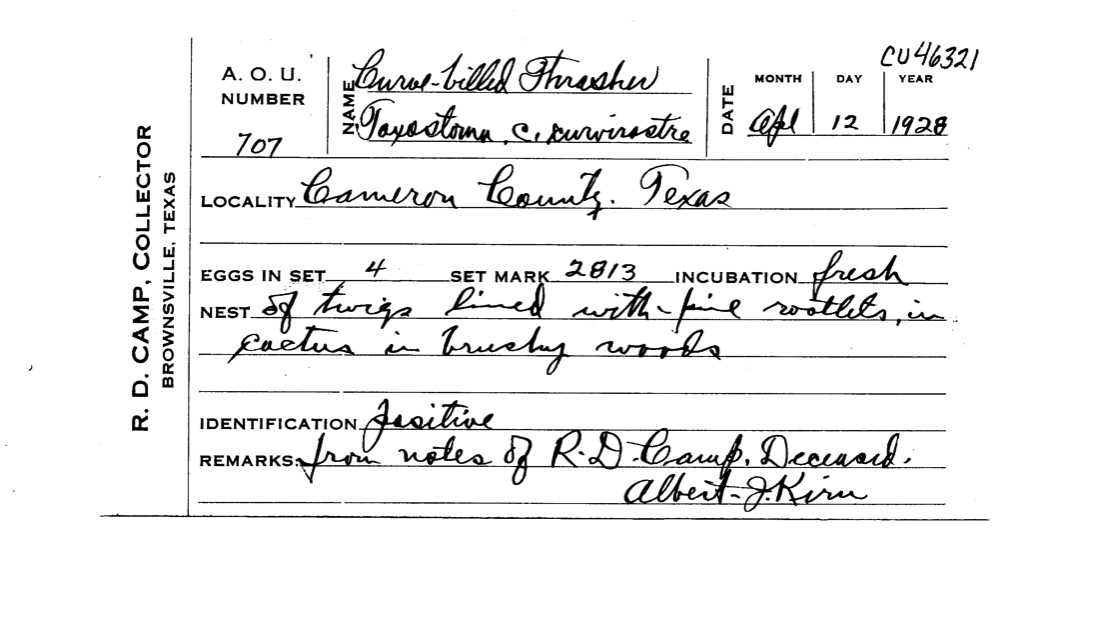 CU46321
R. D. CAMP, COLLECTOR
BROWNSVILLE, TEXAS
A. O. U.
NUMBER
707
NAME Curve-billed Thrasher
Toxostoma. c. curvirostre
DATE
MONTH DAY YEAR
Apl 12 1928
LOCALITY Cameron County. Texas
EGGS IN SET 4 SET MARK 2813 INCUBATION fresh
NEST of twigs lined with fine rootlets, in
cactus in brushy woods
IDENTIFICATION positive
REMARKS. from notes of R.D. Camp, Deceased.
Albert J. Kirn